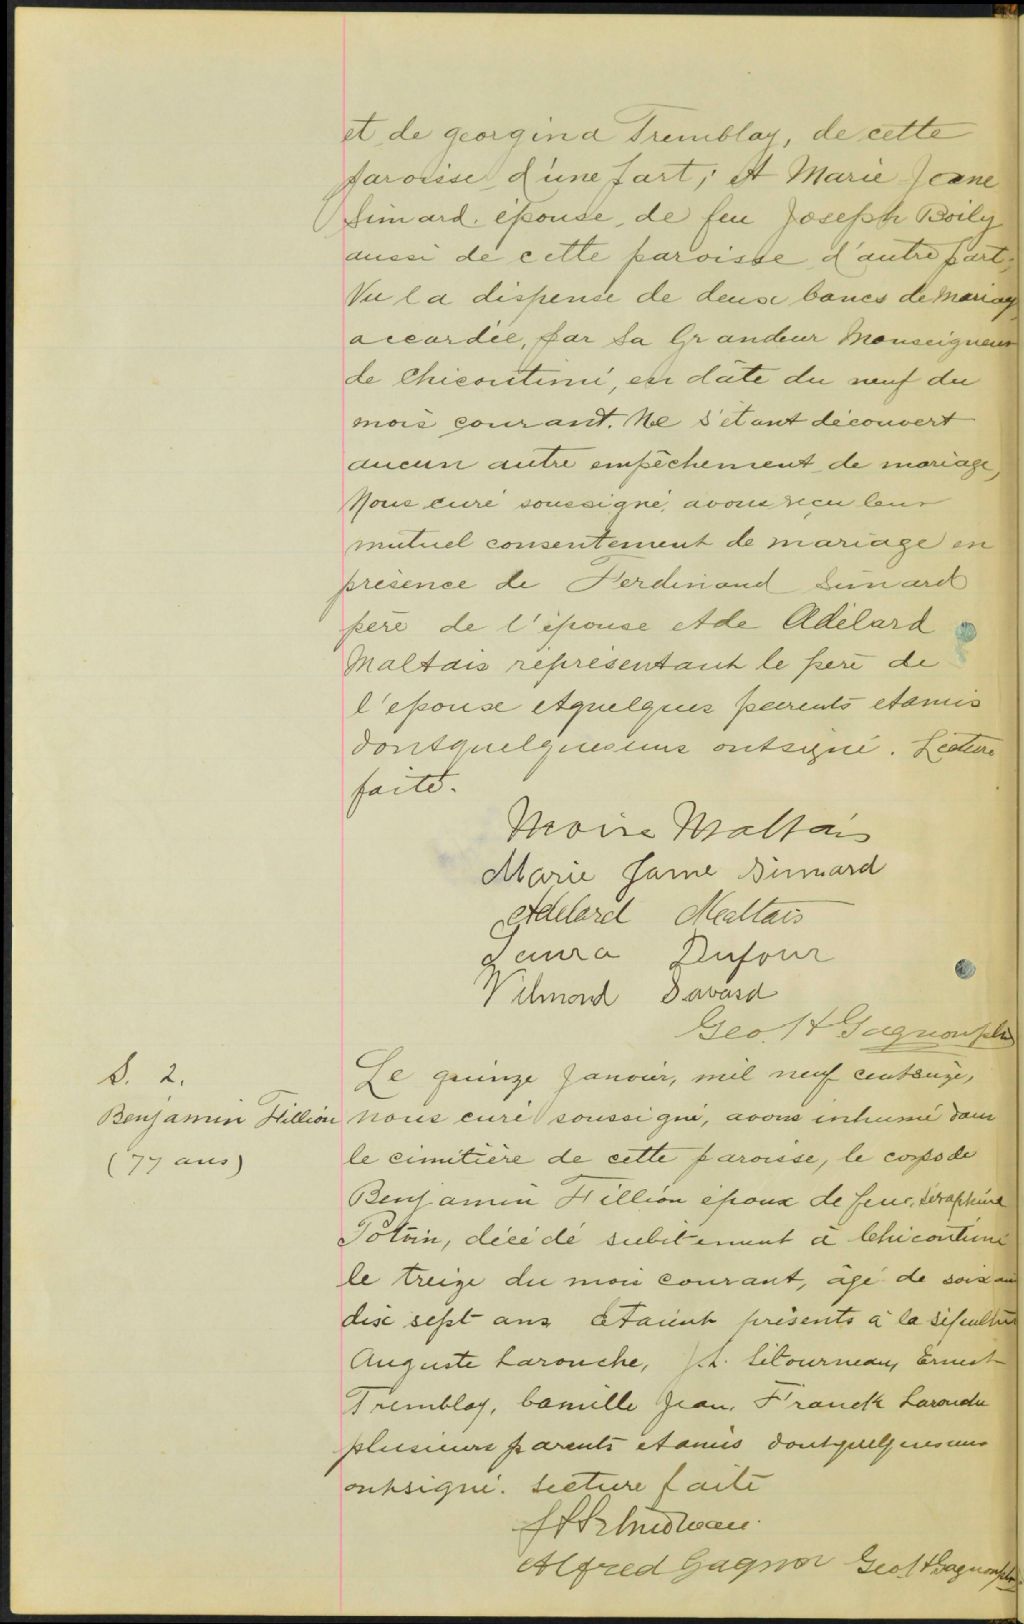 et de georgina Tremblay, de cette
paroisse d'une part; et Marie Jeane
Simard. épouse de feu Joseph Boily
aussi de cette paroisse d'autre part;
Vu la dispense de deux bancs de mariag
accordée, par Sa Grandeur Monseigneur
de Chicoutimi, en dâte du neuf du
mois courant. Ne s'étant découvert
aucun autre empêchement de mariage,
Nous curé soussigné, avons reçu leur
mutuel consentement de mariage en
présence de Ferdinand Simard
père de l'épouse et de Adélard
Maltais réprésentant le père de
l'epoux et quelques parents et amis
dont quelques uns ont signé. Lecture
faite.
Moïse Maltais
Marie Jame Simard
Adelard Maltais
Laura Dufour
Vilmond Savard
Geo. H Gagnon ptre
S. 2.
Benjamin Fillion
(77 ans)
Le quinze Janvier, mil neuf cent seize,
nous curé soussigné, avons inhumé dans
le cimitière de cette paroisse, le corps de
Benjamin Fillion époux de feue, Séraphine
Potvin, décédé subitement à Chicoutimi
le treize du mois courant, âgé de soixan
dix sept ans Etaient présents à la sépulture
Auguste Larouche, J.L. Létourneau, Ernest
Tremblay, Camille Jean, Franck Larouche
plusieurs parents et amis dont quelques uns
ont signé. Lecture faite
Alfred Gagnon Geo. H Gagnon ptre